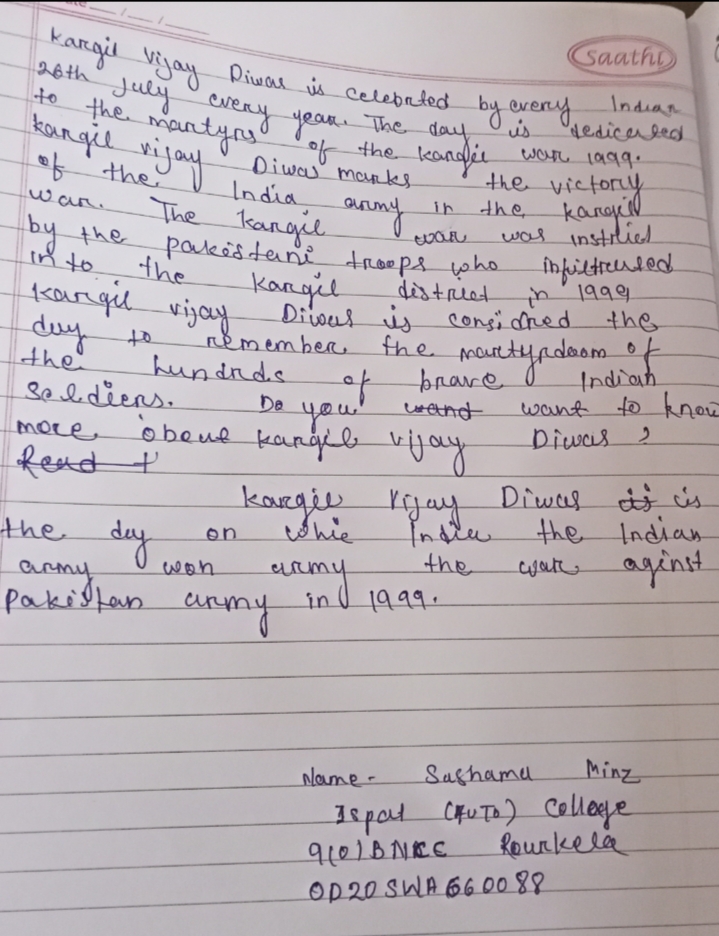 Saathi
Kargil Vijay Diwas is celebrted by every Indian
26th July every year. The day is dedicated
to the martyrs of the kargil war 1999.
kargil vijay Diwas marks the victory
of the India army in the kargil
war. The kargil war was
by the pakistani troops who infiltrated
into the kargil district in 1999
Kargil vijay Diwas is considred the
day to remember the martyrdoom of
the hundrds of brave Indian
Soldiers. Do you want to know
more about kargil vijay Diwas ?
Read
Kargil Vijay Diwas is
the day on whie India the Indian
army won army the war aginst
Pakistan army in 1999.
Name - Sushama Minz
Ispat (AUTO) College
9(O) BNCC Rourkela
OD20SWA660088